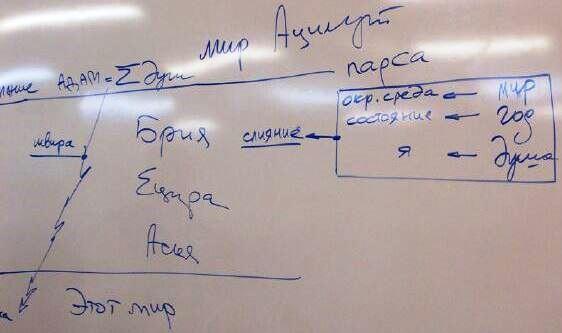 мир Ацилут
АДАМ = Σ Душ
парса
Брия
швира
слияние
окр. среда ← мир
состояние ← год
я ← Душа
Ецира
Асия
Этот мир